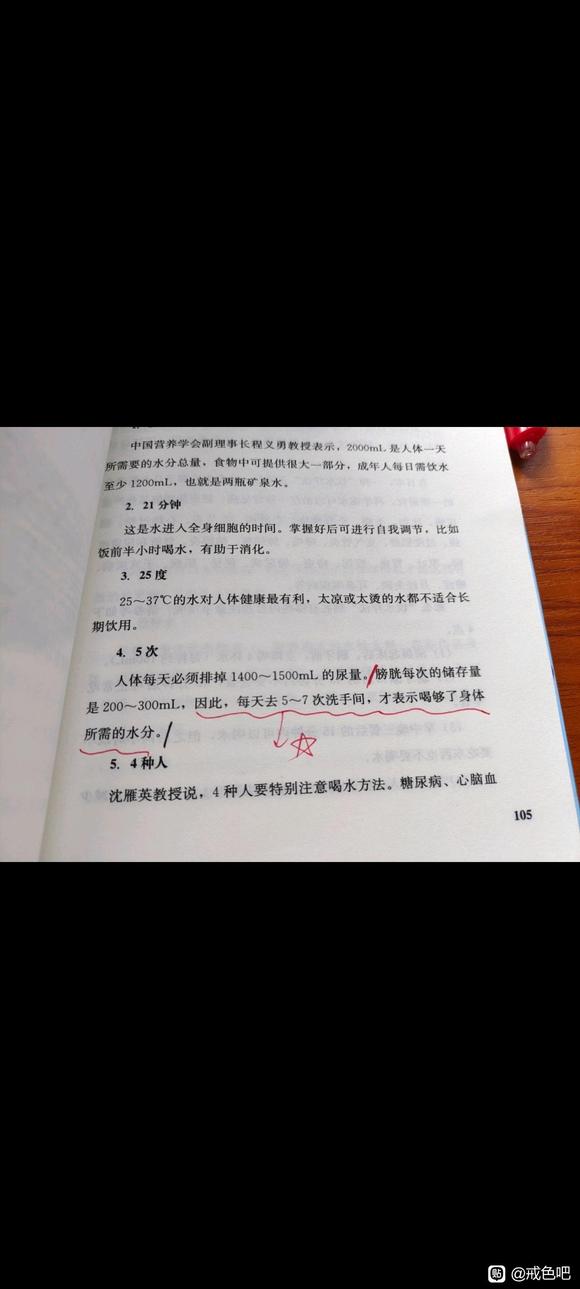 中国营养学会副理事长程义勇教授表示，2000mL 是人体一天
所需要的水分总量，食物中可提供很大一部分，成年人每日需饮水
至少 1200mL，也就是两瓶矿泉水。
2. 21 分钟
这是水进入全身细胞的时间。掌握好后可进行自我调节，比如
饭前半小时喝水，有助于消化。
3. 25 度
25～37℃的水对人体健康最有利，太凉或太烫的水都不适合长
期饮用。
4. 5 次
人体每天必须排掉 1400～1500mL 的尿量。膀胱每次的储存量
是 200～300mL，因此，每天去 5～7 次洗手间，才表示喝够了身体
所需的水分。
5. 4 种人
沈雁英教授说，4 种人要特别注意喝水方法。糖尿病、心脑血
105
贴 @戒色吧